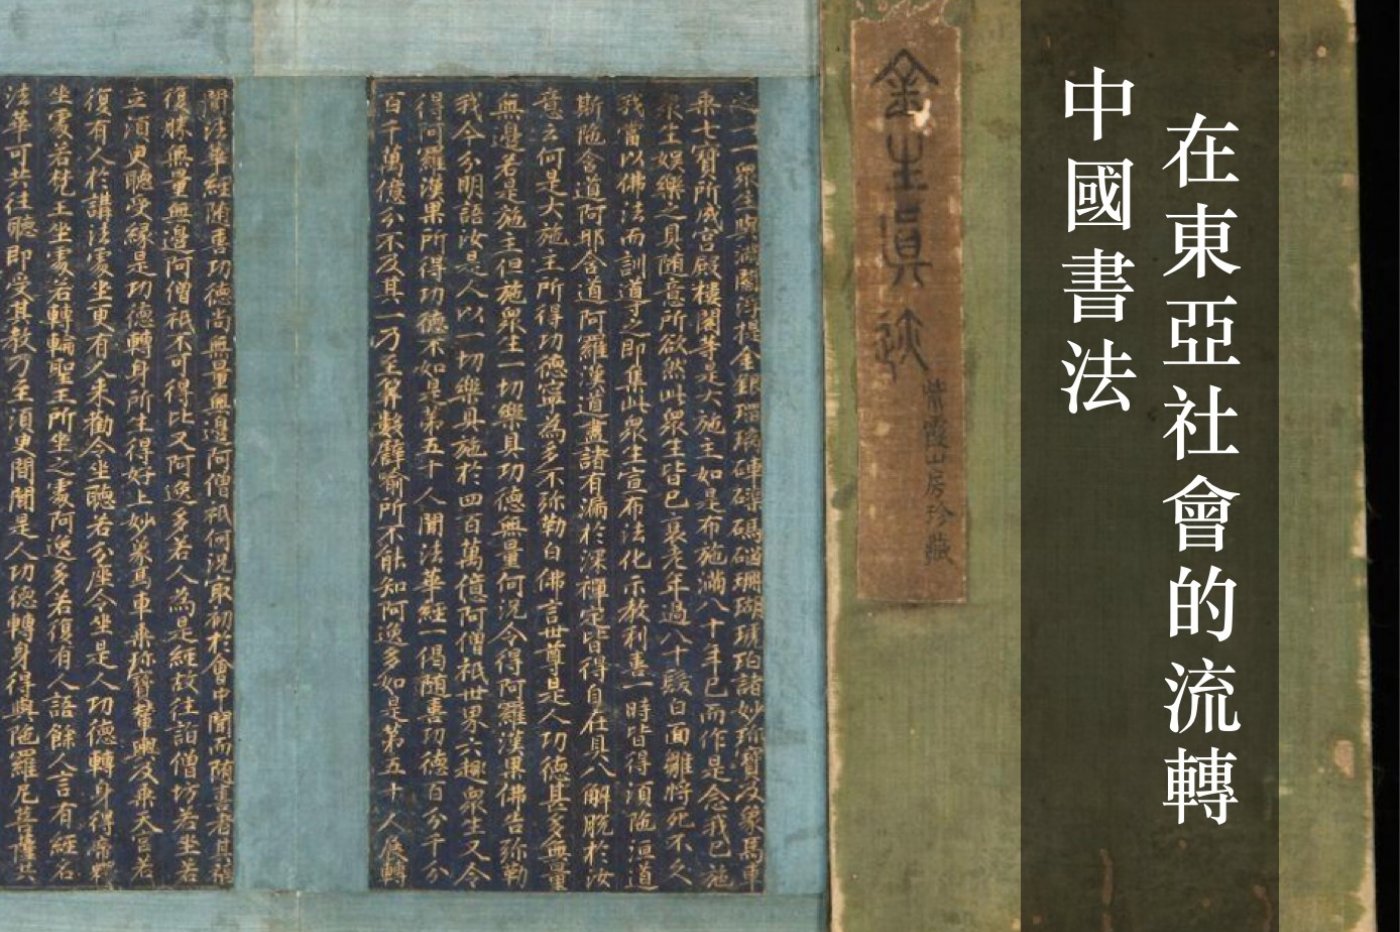 中國書法
在東亞社會的流轉
金生眞迹
紫霞山房珍藏
之一一眾生與滿閻浮提金銀瑠璃硨磲碼碯珊瑚琥珀諸妙珎寶及象馬車
乘七寶所成宮殿樓閣等是大施主如是布施滿八十年已而作是念我已施
眾生娛樂之具随意所欲然此眾生皆已衰老年過八十髮白面皺將死不久
我當以佛法而訓導之即集此眾生宣布法化示教利喜一時皆得須陁洹道
斯陁含道阿那含道阿羅漢道盡諸有漏於深禪定皆得自在具八解脫於汝
意云何是大施主所得功德寧為多不弥勒白佛言世尊是人功德甚多無量
無邊若是施主但施眾生一切樂具功德無量何況令得阿羅漢果佛告弥勒
我今分明語汝是人以一切樂具施於四百萬億阿僧祇世界六趣眾生又令
得阿羅漢果所得功德不如是第五十人聞法華經一偈随喜功德百分千分
百千萬億分不及其一乃至筭數譬喻所不能知阿逸多如是第五十人展轉
聞法華經随喜功德尚無量無邊阿僧祇何況最初於會中聞而随喜者其福
復勝無量無邊阿僧祇不可得比又阿逸多若人為是經故往詣僧坊若坐若
立須臾聽受緣是功德轉身所生得好上妙象馬車乘珎寶輦輿及乘天宮若
復有人於講法處坐更有人來勸令坐聽若分座令坐是人功德轉身得帝釋
坐處若梵王坐處若轉輪聖王所坐之處阿逸多若復有人語餘人言有經名
法華可共往聽即受其教乃至須臾間聞是人功德轉身得與陁羅尼菩薩共